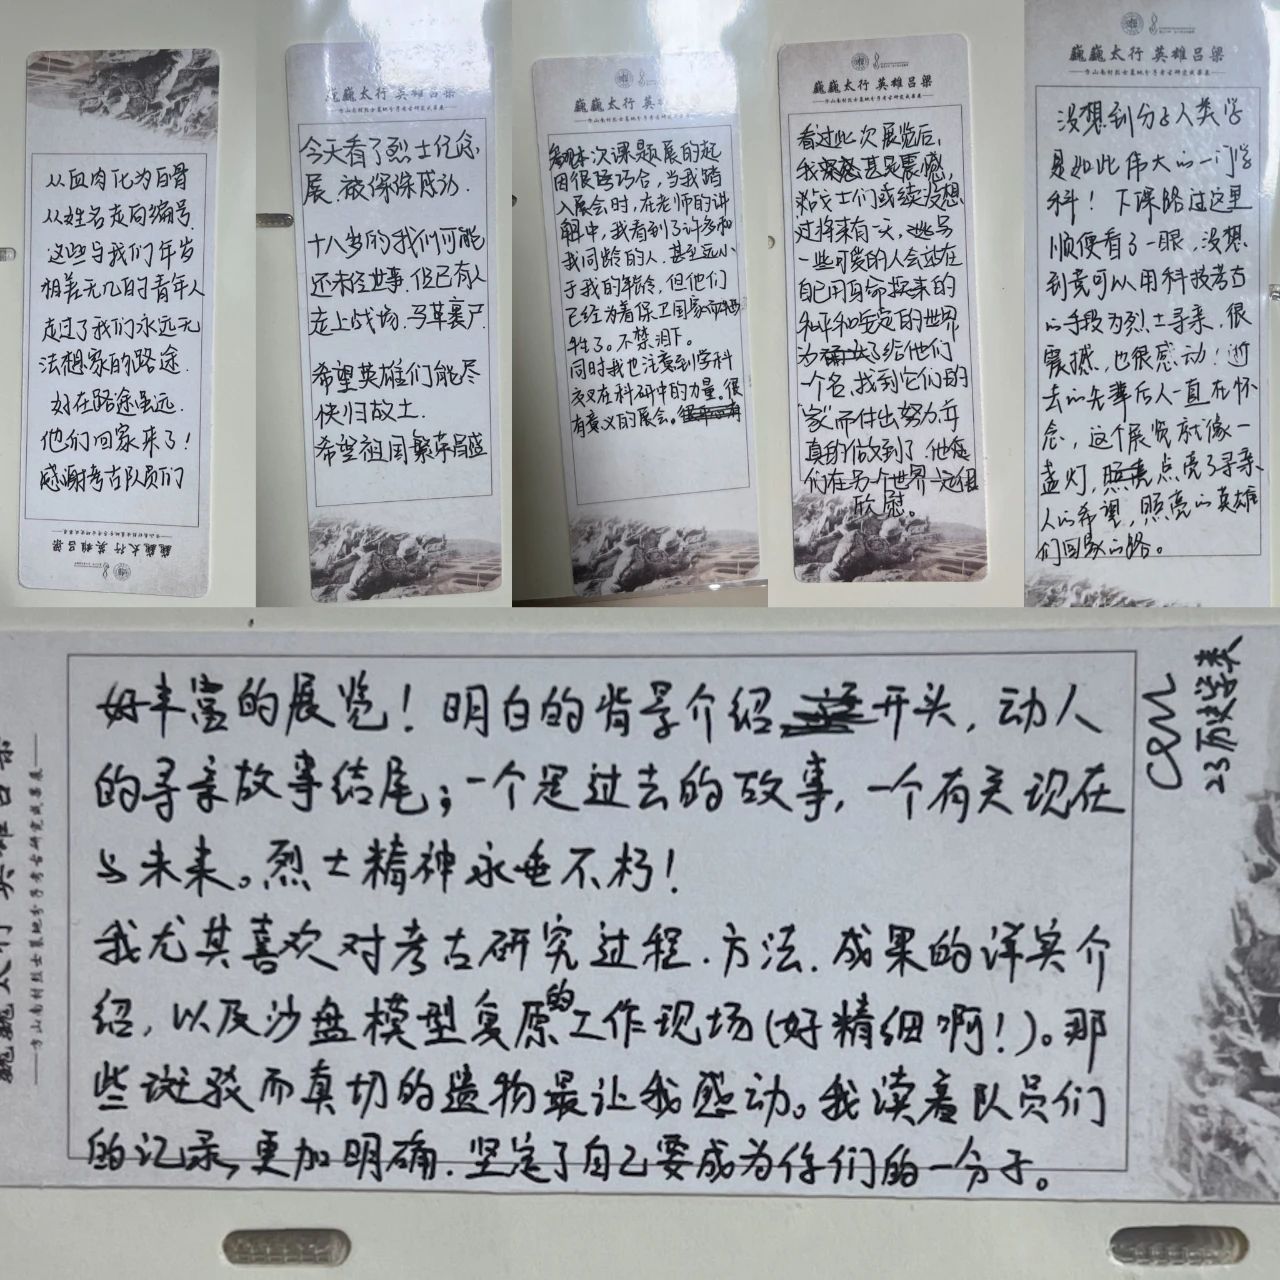 从血肉化为白骨
从姓名走向编号
这些与我们年岁
相差无几的青年人
走过了我们永远无
法想象的路途
好在路途虽远
他们回家来了！
感谢考古队员们
巍巍太行 英雄吕梁
今天看了烈士纪念
展,被深深感动.
十八岁的我们可能
还未经世事,但已有人
走上战场,马革裹尸
希望英雄们能尽
快归故土.
希望祖国繁荣昌盛
巍巍太行 英雄吕梁
本次课题展的起
因很巧合，当我踏
入展会时，在老师的讲
解中，我看到了许多和
我同龄的人，甚至远小
于我的年龄，但他们
已经为着保卫国家而牺
牲了。不禁泪下。
同时我也注意到学科
交叉在科研中的力量。很
有意义的展会。
巍巍太行 英雄吕梁
看过此次展览后，
我甚是震撼，
战士们或续没想
过将来有一天，
一些可爱的人会站在
自己用自命换来的
和平和安定的世界
为了给他们
一个名，找到它们的
“家”而付出努力，并
真的做到了，他
们在另一个世界一定很
欣慰。
巍巍太行 英雄吕梁
没想到分子人类学
是如此伟大的一门学
科！下课路过这里
顺便看了一眼，没想
到竟可以用科技考古
的手段为烈士寻亲，很
震撼，也很感动！逝
去的先辈后人一直在怀
念，这个展览就像一
盏灯，点亮了寻亲
人的希望，照亮的英雄
们回家的路。
好丰富的展览！明白的背景介绍开头，动人
的寻亲故事结尾；一个是过去的故事，一个有关现在
与未来。烈士精神永垂不朽！
我尤其喜欢对考古研究过程、方法、成果的详实介
绍，以及沙盘模型复原的工作现场(好精细啊！)。那
些斑驳而真切的遗物最让我感动。我读着队员们
的记录，更加明确、坚定了自己要成为你们的一分子。